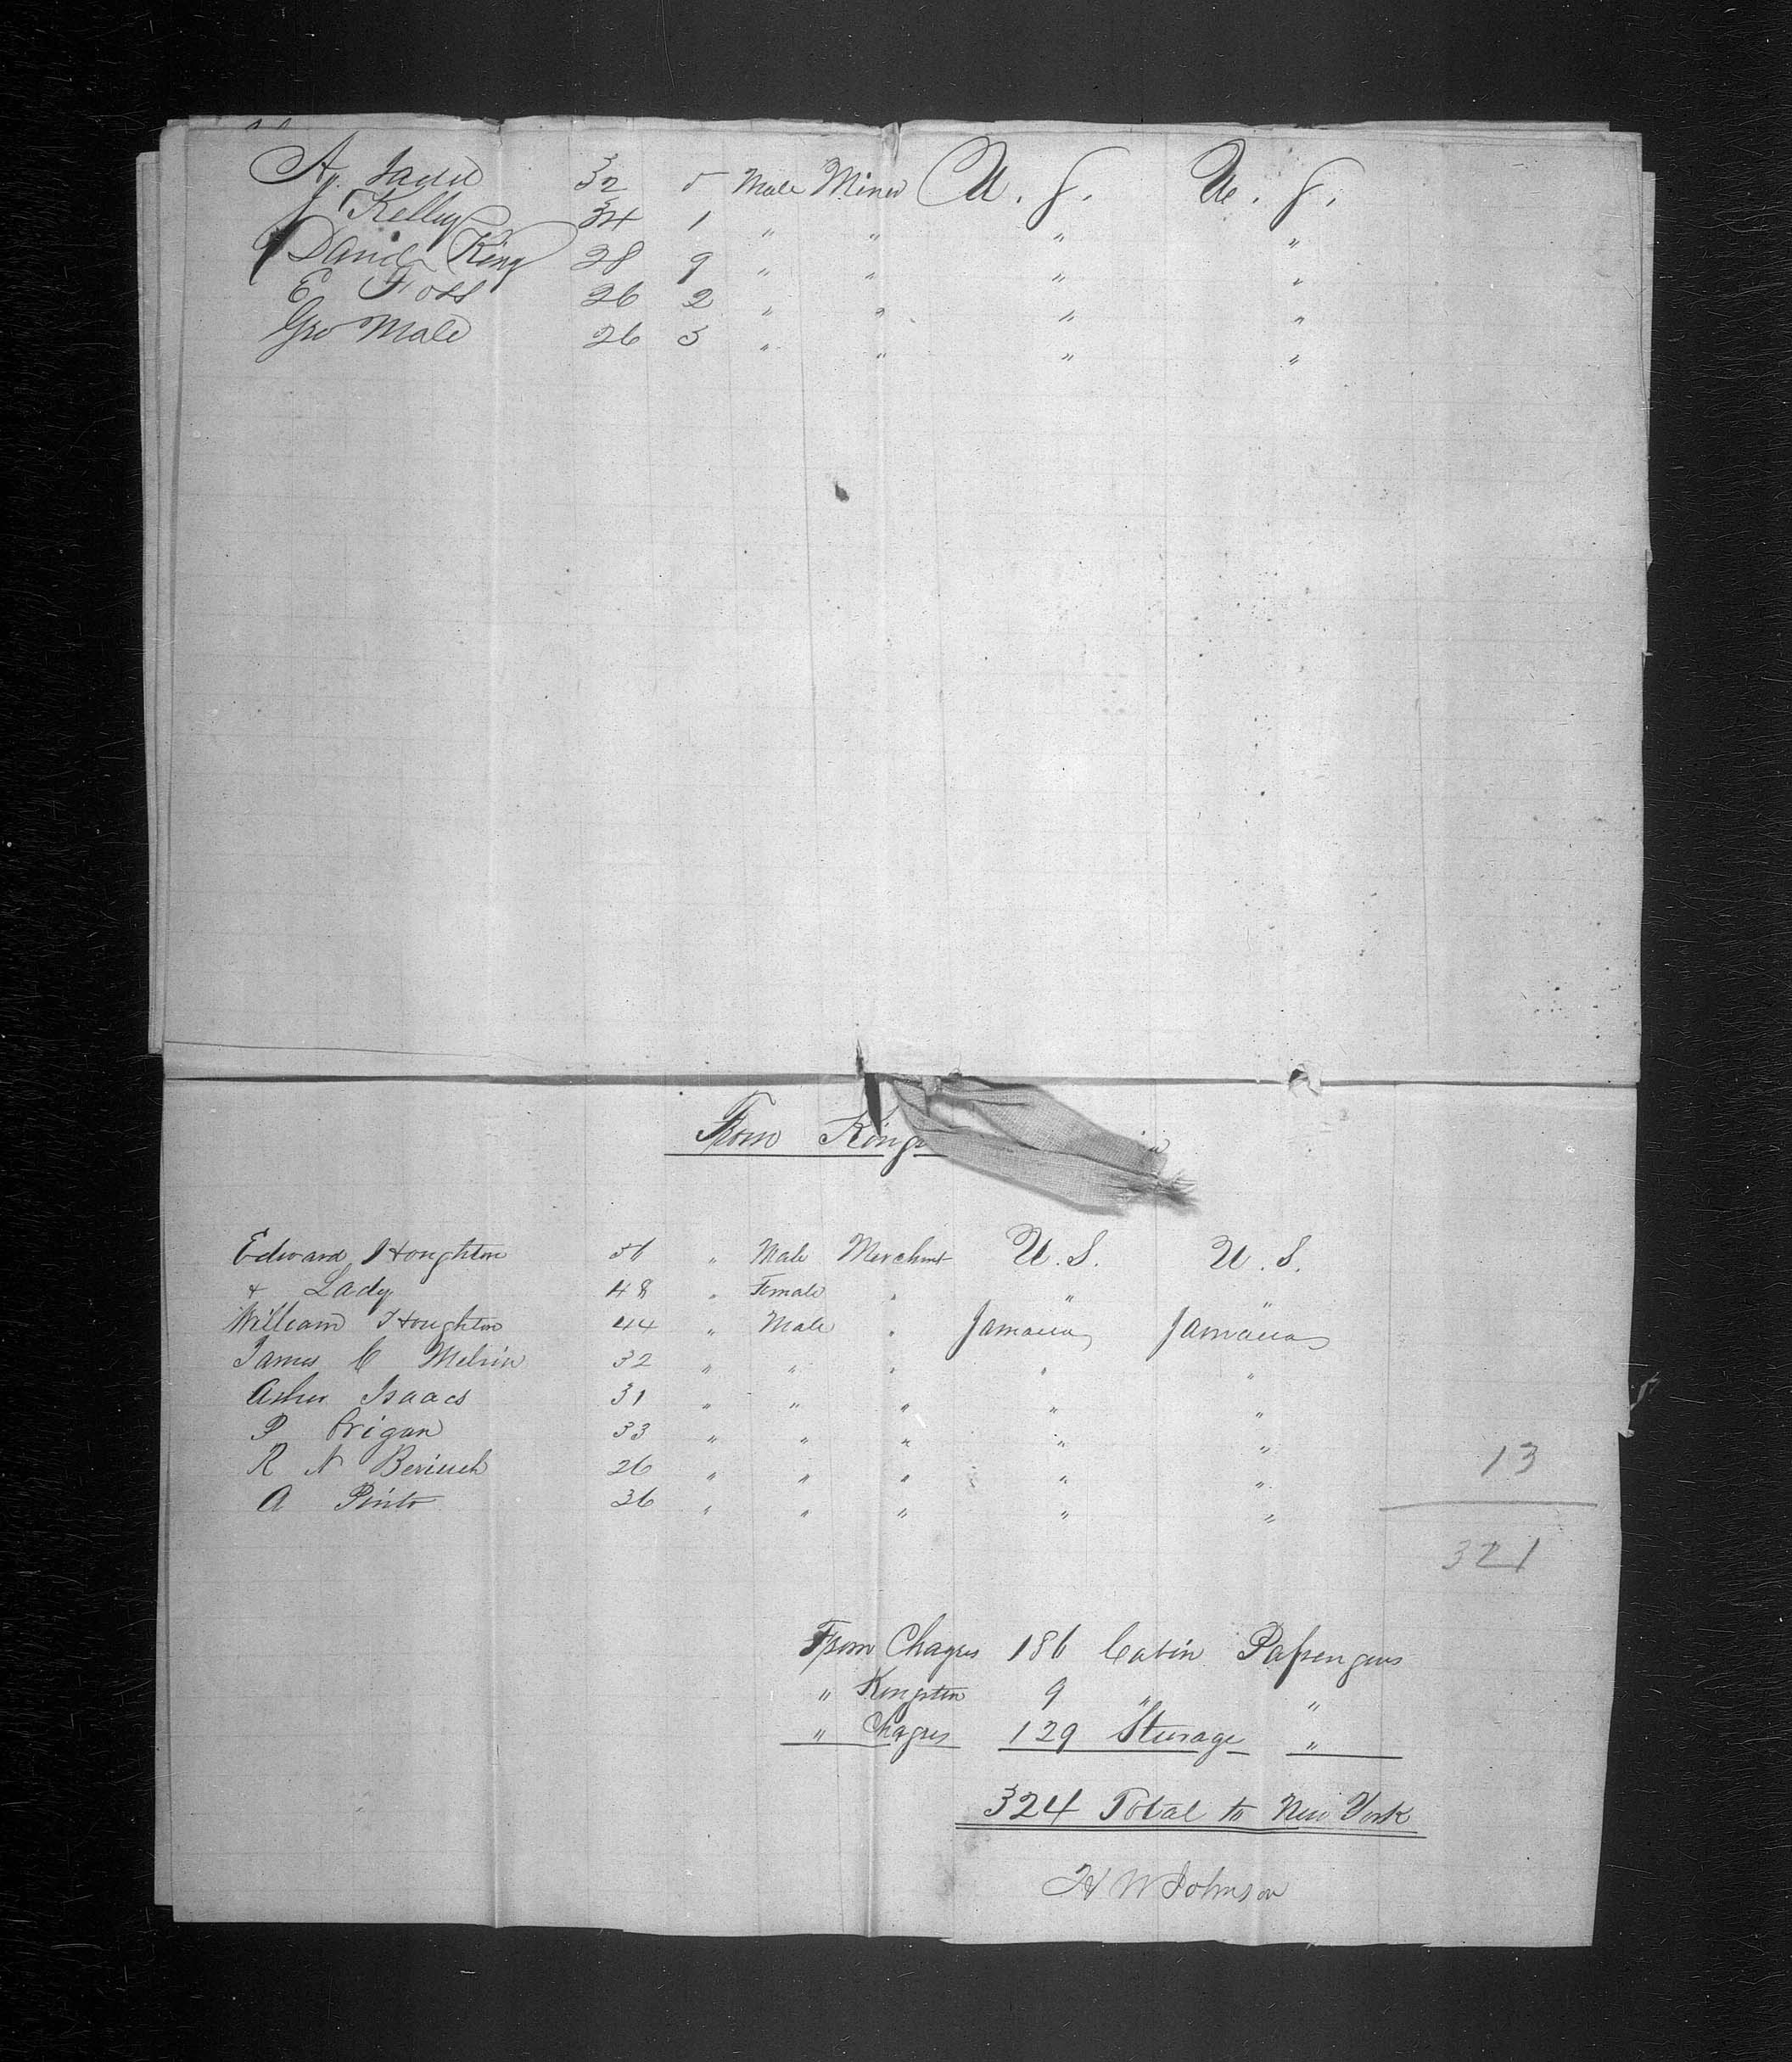 32 5 Male Miner U. S. U. S.
J Kelley 34 1 " " " "
David King 28 9 " " " "
E Foss 26 2 " " " "
Geo Male 26 3 " " " "
From Kings
Edward Houghton 56 " Male Merchant U. S. U. S.
& Lady 48 " Female " " "
William Houghton 44 " Male " Jamaica Jamaica
James C Melvin 32 " " " " "
Asher Isaacs 31 " " " " "
P Brigan 33 " " " " "
R N 26 " " " " "
A Pinto 36 " " " " "
13
321
From Chagres 186 Cabin Passengers
" Kingston 9 " "
" Chagres 129 Sturage "
324 Total to New York
H W Johnson